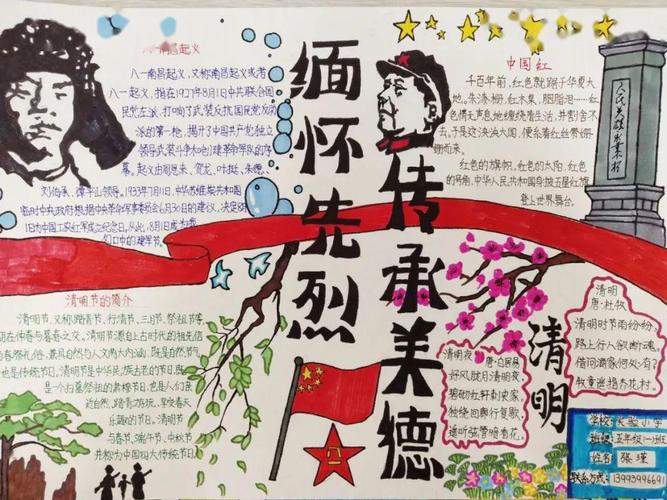 南昌起义
八一南昌起义,又称南昌起义或者
八一起义,指在1927年8月1日中共联合国
民党左派,打响了武装反抗国民党反动
派的第一枪,揭开了中国共产党独立
领导武装斗争和创建革命军队的序
幕。起义由周恩来、贺龙、叶挺、朱德、
刘伯承、谭平山领导。1933年7月1日,中华苏维埃共和国
临时中央政府根据中央革命军事委员会6月30日的建议,决定8月
1日为中国工农红军成立纪念日。从此,8月1日成为
们口中的建军节。
缅怀先烈
传承美德
中国红
千百年前,红色就跟子华夏大
地。朱漆栅,红木集,胭脂泪……红
色悄无声息地缠绕着生活,并割舍不
去。于是这泱泱大国,便系着红丝带姗
姗而来。
红色的旗帜,红色的太阳,红色
的号角,中华人民共和国身披五星红旗
登上世界舞台。
人民英雄永垂不朽
清明节的简介
清明节,又称踏青节、行清节、三月节、祭祖节等,
在仲春与暮春之交。清明节源自上古时代的祖先信
与春祭礼俗,兼具自然与人文两大内涵,既是自然节气
也是传统节日。清明节是中华民族古老的节日,既
是一个扫墓祭祖的肃穆节日,也是人们亲
近自然、踏青游玩、享受春天
乐趣的节日。清明节
与春节、端午节、中秋节
并称为中国四大传统节日
清明夜
唐·白居易
好风胧月清明夜,
碧砌红轩刺史家。
独绕回廊行复歇,
遥听弦管暗看花。
清明
清明
唐·杜牧
清明时节雨纷纷,
路上行人欲断魂。
借问酒家何处有?
牧童遥指杏花村。
学校:实验小学
班级:五年级(一)班
姓名:张瑾
联系方式: